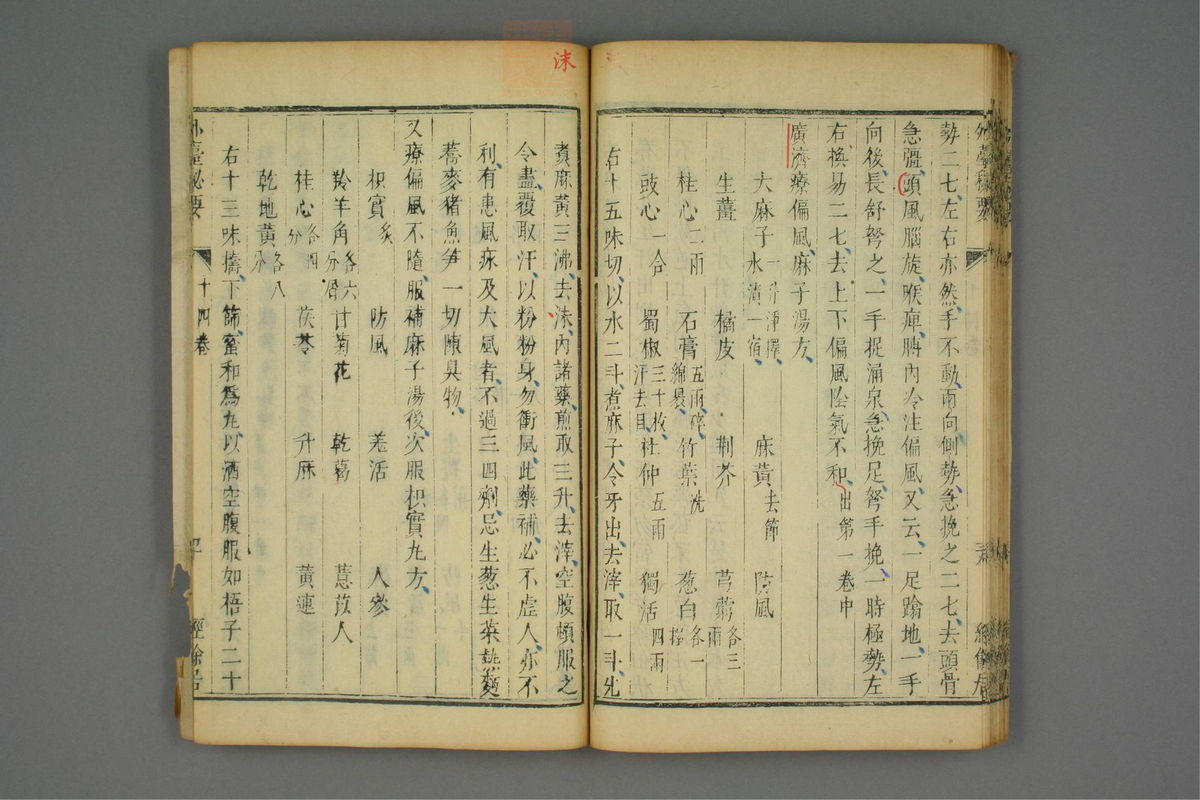 勢二七、左右亦然、手不動、兩向側勢、急挽之二七、去頭骨
急彊、頭風腦旋、喉痺、膊內冷注偏風、又云、一足蹹地、一手
向後、長舒努之、一手捉涌泉、急挽足、努手挽、一時極勢、左
右換易二七、去上下偏風陰氣不和、出第一卷中
廣濟療偏風、麻子湯方、
大麻子一升淨擇、水漬一宿、 麻黃去節 防風
生薑 橘皮 荆芥 芎藭各三兩
桂心二兩 石膏五兩、碎、綿裹、 竹葉洗 葱白各一握
豉心一合 蜀椒三十枚、汗去目、 杜仲五兩 獨活四兩
右十五味切、以水二斗、煮麻子、令牙出、去滓、取一斗、先
煮麻黃三沸、去沫、內諸藥、煎取三升、去滓、空腹頓服之
令盡、覆取汗、以粉粉身、勿衝風、此藥補、必不虛人、亦不
利、有患風疹及大風者、不過三四劑、忌生葱生菜熱麵
蕎麥猪魚笋一切陳臭物、
又療偏風不隨、服補麻子湯後次服枳實丸方、
枳實炙 防風 羌活 人參
羚羊角各六分屑 甘菊花 乾葛 薏苡人
桂心各四分 茯苓 升麻 黃連
乾地黃各八分
右十三味擣、下篩、蜜和爲丸、以酒空腹服如梧子二十
外臺秘要 十四卷 經餘居
沫